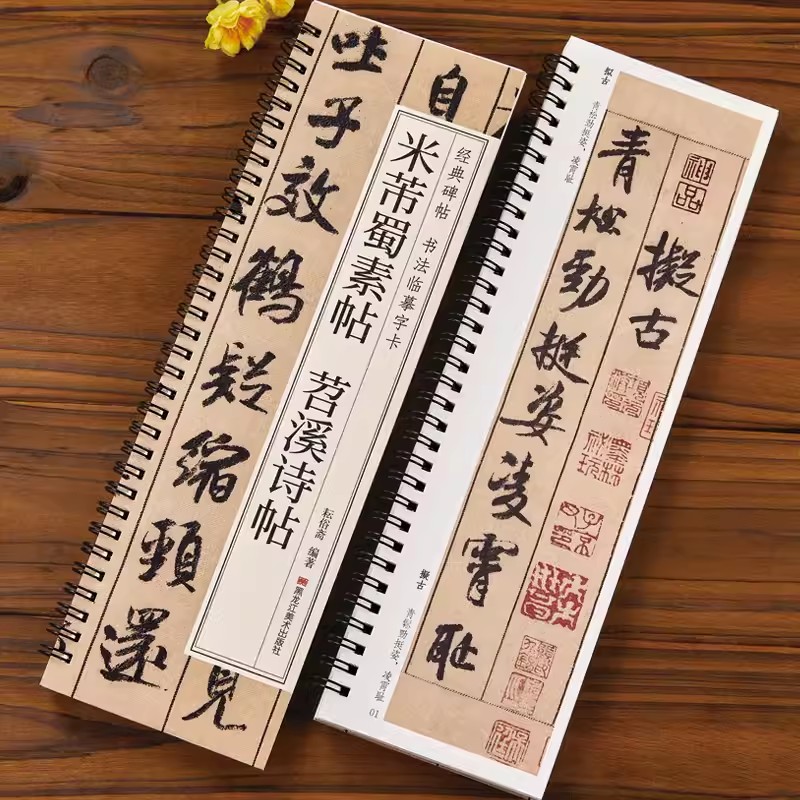 吐子效鶴疑縮頸還
自
見
经典碑帖 书法临摹字卡
米芾蜀素帖 苕溪诗帖
耘俗斋 编著
黑龙江美术出版社
拟古
青松劲挺姿,凌霄耻
神品
擬古
青松勁挺姿凌霄恥
拟古
青松劲挺姿,凌霄耻
01